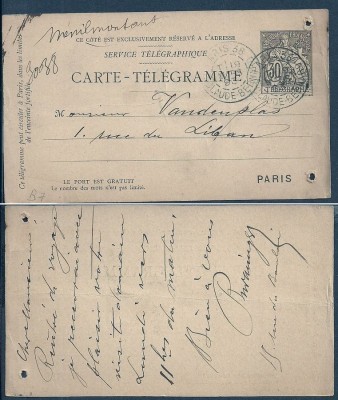 Menilmontant
CE CÔTÉ EST EXCLUSIVEMENT RÉSERVÉ À L'ADRESSE
SERVICE TÉLÉGRAPHIQUE
CARTE-TÉLÉGRAMME
Monsieur Vandenplas
1. rue du Liban
LE PORT EST GRATUIT
Le nombre des mots n'est pas limité.
PARIS
Ce télégramme peut circuler à Paris, dans les limites
de l'enceinte fortifiée.
TELEGRAPHE
Cher Monsieur
Rentré de voyage
je recevrai avec
plaisir votre
visite demain
Lundi vers
11 hes du matin.
Bien à vous
15 rue du